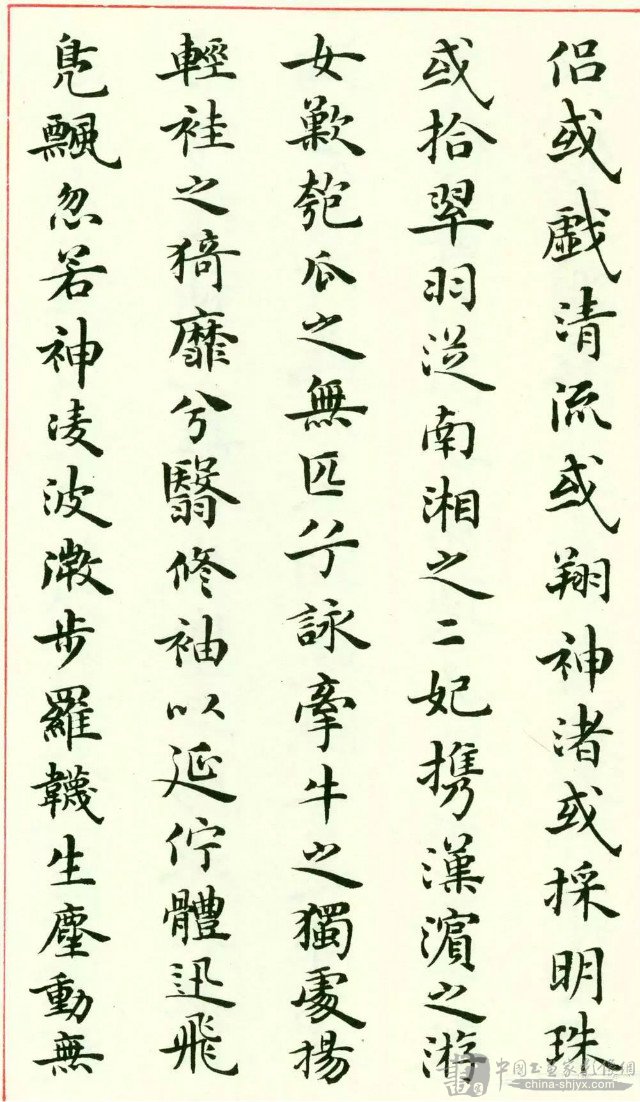 侣或戲清流或翔神渚或採明珠
或拾翠羽從南湘之二妃攜漢濱之游
女歎匏瓜之無匹兮詠牽牛之獨處揚
輕袿之猗靡兮翳修袖以延佇體迅飛
鳧飄忽若神凌波微步羅襪生塵動無
中国书画家联谊網
china-shjyx.com